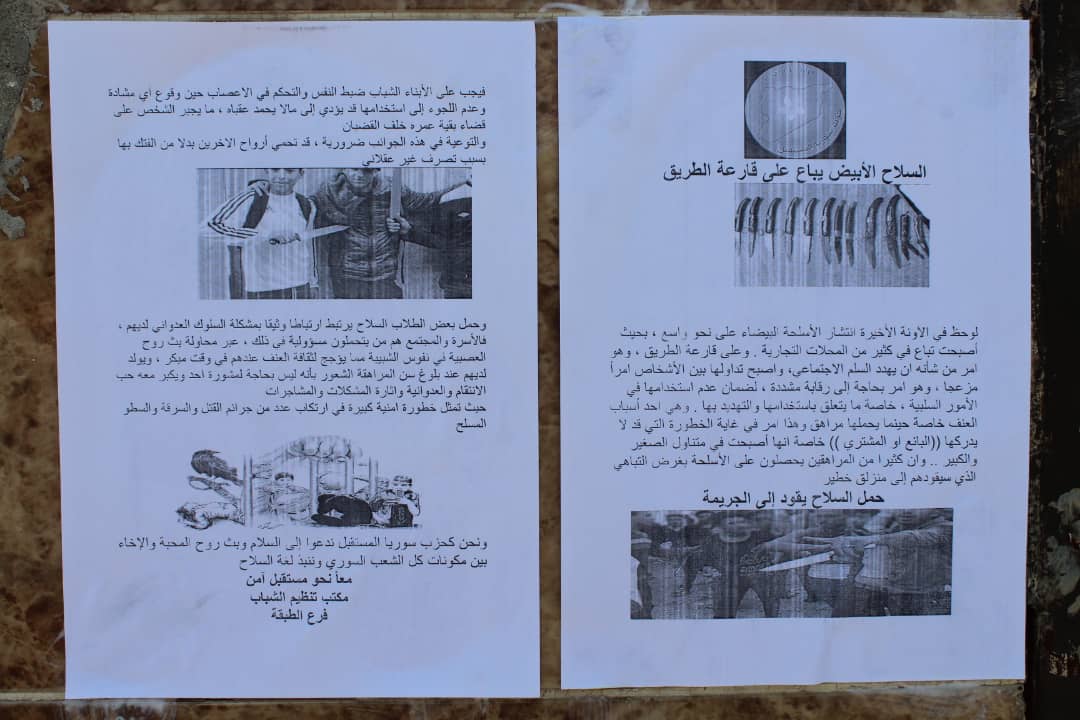 السلاح الأبيض يباع على قارعة الطريق
لوحظ في الاونة الأخيرة انتشار الأسلحة البيضاء على نحو واسع ، بحيث
أصبحت تباع في كثير من المحلات التجارية . وعلى قارعة الطريق ، وهو
امر من شأنه ان يهدد السلم الاجتماعي، واصبح تداولها بين الأشخاص امراً
مزعجا ، وهو امر بحاجة إلى رقابة مشددة ، لضمان عدم استخدامها في
الأمور السلبية ، خاصة ما يتعلق باستخدامها والتهديد بها . وهي احد أسباب
العنف خاصة حينما يحملها مراهق وهذا امر في غاية الخطورة التي قد لا
يدركها ((البائع او المشتري )) خاصة انها أصبحت في متناول الصغير
والكبير .. وان كثيرا من المراهقين يحصلون على الأسلحة بغرض التباهي
الذي سيقودهم إلى منزلق خطير
حمل السلاح يقود إلى الجريمة
فيجب على الأبناء الشباب ضبط النفس والتحكم في الاعصاب حين وقوع أي مشادة
وعدم اللجوء إلى استخدامها قد يؤدي إلى مالا يحمد عقباه ، ما يجبر الشخص على
قضاء بقية عمره خلف القضبان
والتوعية في هذه الجوانب ضرورية ، قد تحمي أرواح الاخرين بدلا من الفتك بها
بسبب تصرف غير عقلاني
وحمل بعض الطلاب السلاح يرتبط ارتباطا وثيقا بمشكلة السلوك العدواني لديهم ،
فالأسرة والمجتمع هم من يتحملون مسؤولية في ذلك ، عبر محاولة بث روح
العصبية في نفوس الشبيبة مما يؤجج لثقافة العنف عندهم في وقت مبكر ، ويولد
لديهم عند بلوغ سن المراهقة الشعور بأنه ليس بحاجة لمشورة احد ويكبر معه حب
الانتقام والعدوانية واثارة المشكلات والمشاجرات
حيث تمثل خطورة امنية كبيرة في ارتكاب عدد من جرائم القتل والسرقة والسطو
المسلح
ونحن كحزب سوريا المستقبل ندعوا إلى السلام وبث روح المحبة والإخاء
بين مكونات كل الشعب السوري وننبذ لغة السلاح
معاً نحو مستقبل آمن
مكتب تنظيم الشباب
فرع الطبقة